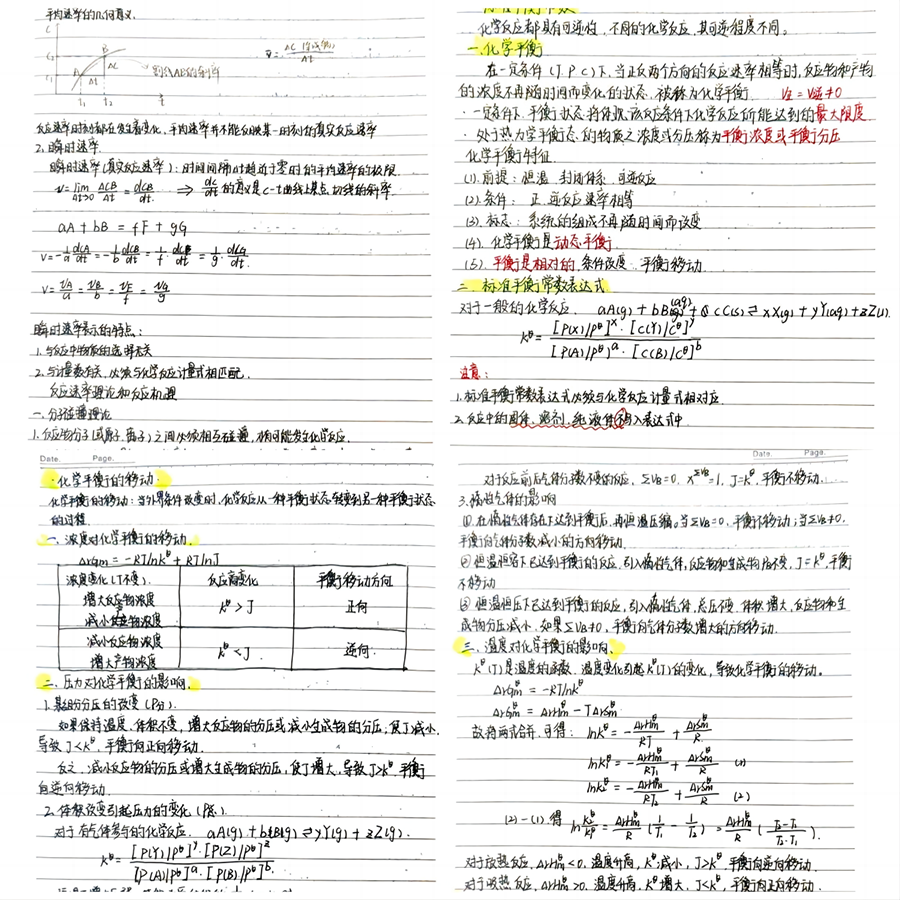 平均速率的几何意义.
c
B
c₂
ΔC
c₁
A
Δt
割线AB的斜率
t₁ t₂ t
v̄ = ΔC(生成物)/Δt
反应速率时时都在发生着变化,平均速率并不能反映某一时刻的真实反应速率
2. 瞬时速率.
瞬时速率(真实反应速率):时间间隔Δt趋近于零时的平均速率的极限
v = lim Δt→0 ΔCB/Δt = dCB/dt ⇒ dc/dt 的意义是c-t曲线上某点切线的斜率.
aA + bB = fF + gG
v = -1/a dCA/dt = -1/b dCB/dt = 1/f dCF/dt = 1/g dCG/dt.
v = vA/a = vB/b = vF/f = vG/g
瞬时速率表示的特点:
1. 与反应中物质的选择无关
2. 与计量数有关,必须与化学反应计量式相匹配.
反应速率理论和反应机理
一. 分子碰撞理论
1. 反应物分子(或原子.离子)之间必须相互碰撞,才可能发生化学反应.
化学反应都具有可逆性,不同的化学反应,其可逆程度不同。
一. 化学平衡
在一定条件(T. P. C)下,当正反两个方向的反应速率相等时,反应物和产物
的浓度不再随时间而变化的状态,被称为化学平衡. v正 = v逆 ≠ 0
· 一定条件下,平衡状态将体现该反应条件下化学反应所能达到的最大限度
· 处于热力学平衡态的物质之浓度或分压称为平衡浓度或平衡分压
化学平衡特征
(1). 前提:恒温.封闭体系.可逆反应
(2). 条件:正.逆反应速率相等
(3). 标志:系统的组成不再随时间而改变
(4). 化学平衡是动态平衡.
(5). 平衡是相对的,条件改变,平衡移动
二. 标准平衡常数表达式
对于一般的化学反应. aA(g) + bB(aq) + cC(s) ⇌ xX(g) + yY(aq) + zZ(l).
Kᶿ = [P(X)/Pᶿ]ˣ · [C(Y)/Cᶿ]ʸ / [P(A)/Pᶿ]ᵃ · [C(B)/Cᶿ]ᵇ
注意:
1. 标准平衡常数表达式必须与化学反应计量式相对应.
2. 反应中的固体、溶剂、纯液体不写入表达式中
Date. Page.
· 化学平衡的移动 ·
化学平衡的移动:当外界条件改变时,化学反应从一种平衡状态转变到另一种平衡状态
的过程.
一. 浓度对化学平衡的移动.
ΔrGm = -RTlnKᶿ + RTlnJ
浓度变化(T不变). 反应商变化 平衡移动方向
增大反应物浓度
减小生成物浓度 Kᶿ > J 正向
减小反应物浓度
增大产物浓度 Kᶿ < J. 逆向.
二. 压力对化学平衡的影响.
1. 部分分压的改变(P分).
如果保持温度.体积不变,增大反应物的分压或减小生成物的分压,使J减小.
导致 J < Kᶿ,平衡向正向移动.
反之,减小反应物的分压或增大生成物的分压,使J增大,导致J>Kᶿ,平衡
向逆向移动.
2. 体积改变引起压力的变化(P总).
对于有气体参与的化学反应. aA(g) + bB(g) ⇌ yY(g) + zZ(g).
Kᶿ = [P(Y)/Pᶿ]ʸ · [P(Z)/Pᶿ]ᶻ / [P(A)/Pᶿ]ᵃ · [P(B)/Pᶿ]ᵇ.
Date. Page.
对于反应前后气体分子数不变的反应, ΣVB=0. x^ΣVB=1, J=Kᶿ, 平衡不移动.
3. 惰性气体的影响
① 在惰性气体存在下达到平衡后,再恒温压缩.当ΣVB=0,平衡不移动;当ΣVB≠0,
平衡向气体分子数减小的方向移动.
② 恒温恒容下已达到平衡的反应,引入惰性气体,反应物和生成物P不变, J=Kᶿ,平衡
不移动
③ 恒温恒压下已达到平衡的反应,引入惰性气体,总压不变,体积增大,反应物和生
成物分压减小,如果ΣVB≠0,平衡向气体分子数增大的方向移动.
三. 温度对化学平衡的影响.
Kᶿ(T)是温度的函数. 温度变化引起Kᶿ(T)的变化,导致化学平衡的移动。
ΔrGmᶿ = -RTlnKᶿ
ΔrGmᶿ = ΔrHmᶿ - TΔrSmᶿ
故将两式合并,可得: lnKᶿ = -ΔrHmᶿ/RT + ΔrSmᶿ/R.
lnK₁ᶿ = -ΔrHmᶿ/RT₁ + ΔrSmᶿ/R (1)
lnK₂ᶿ = -ΔrHmᶿ/RT₂ + ΔrSmᶿ/R (2)
(2)-(1)得 ln K₂ᶿ/K₁ᶿ = ΔrHmᶿ/R (1/T₁ - 1/T₂) = ΔrHmᶿ/R (T₂-T₁/T₂·T₁).
对于放热反应, ΔrHm<0, 温度升高, Kᶿ减小, J>Kᶿ, 平衡向逆向移动
对于吸热反应, ΔrHm>0. 温度升高, Kᶿ增大, J<Kᶿ, 平衡向正向移动.